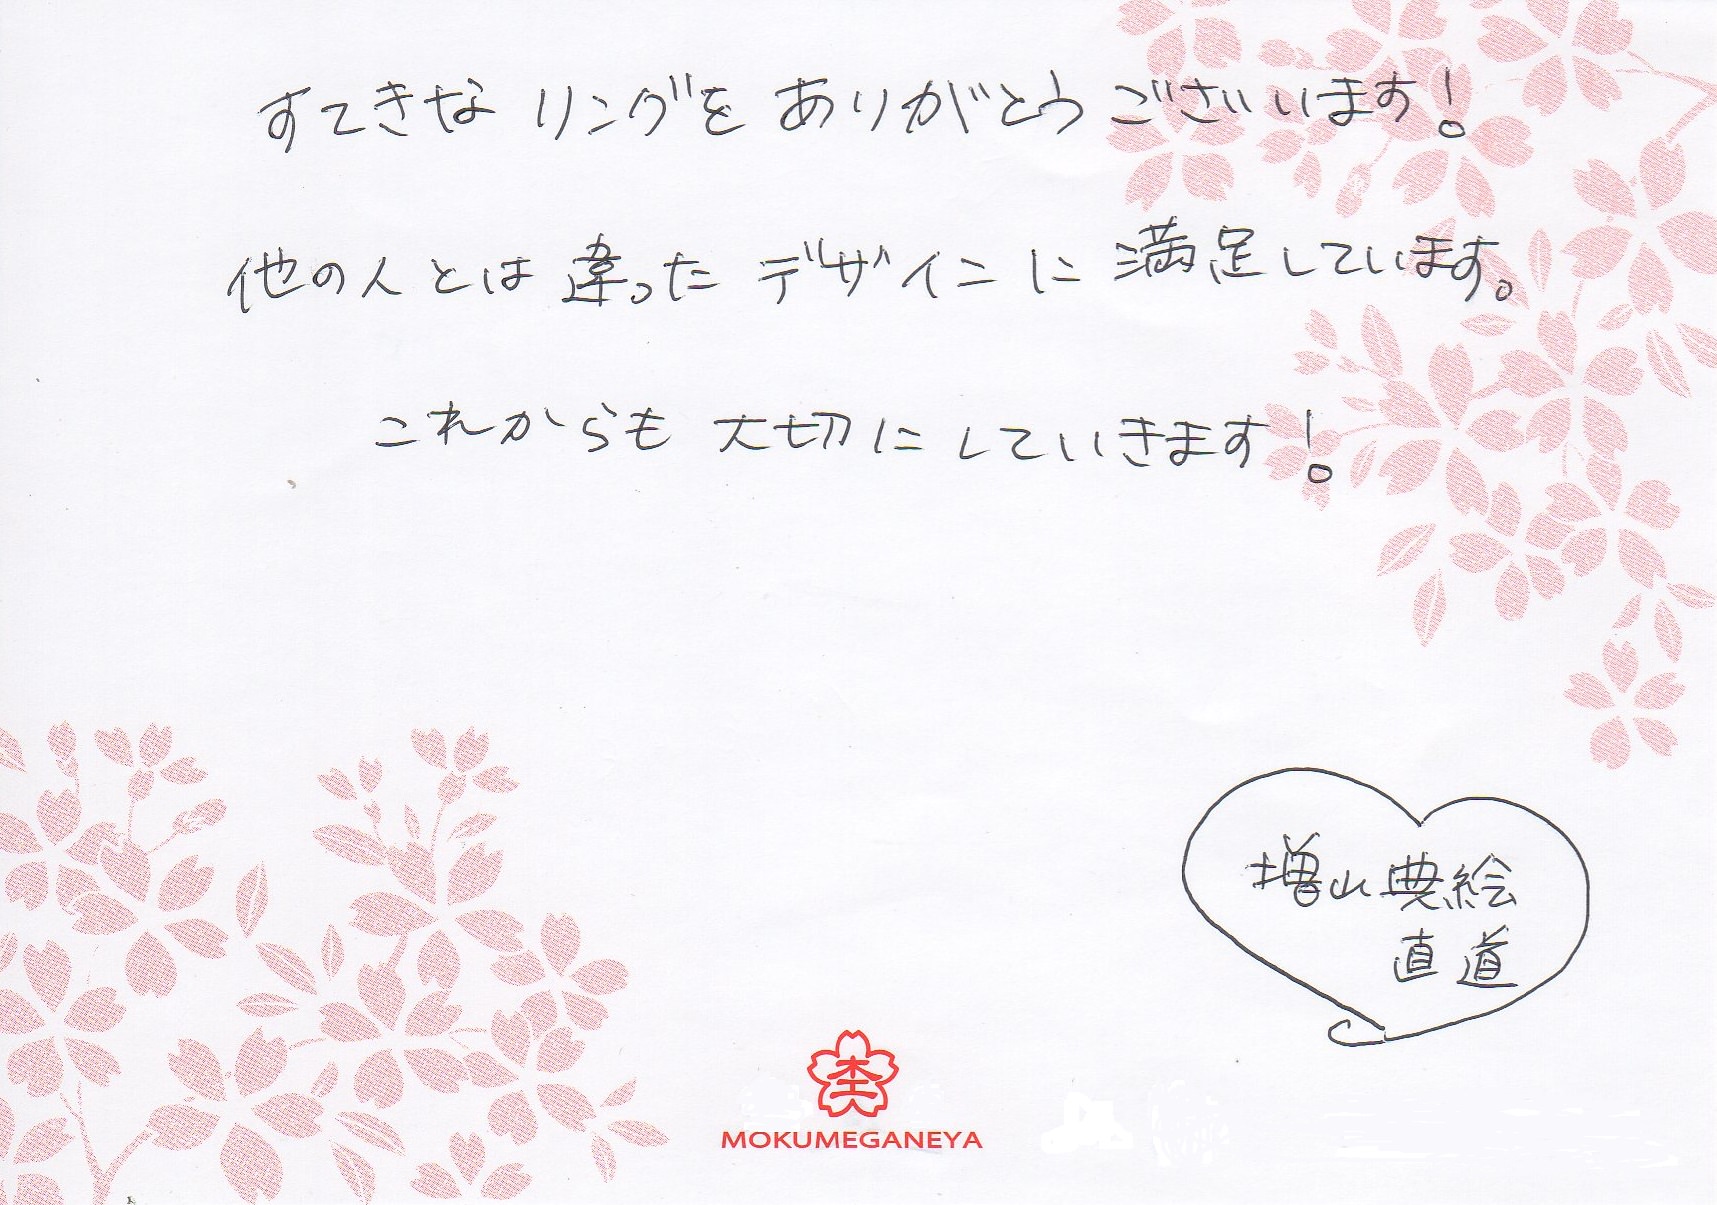 すてきな リングを ありがとう ございます!
他の人とは 違った デザインに 満足しています。
これからも 大切に していきます!
増山典絵
直道
MOKUMEGANEYA